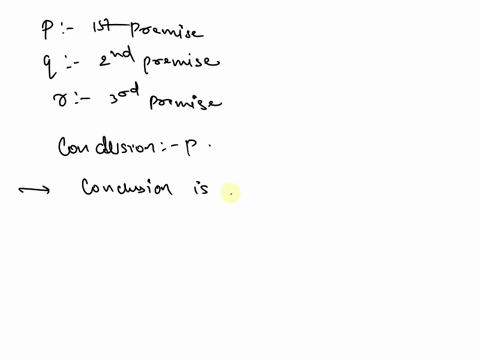 p :- 1st premise
q :- 2nd premise
r :- 3rd premise
Conclusion :- p .
→ Conclusion is